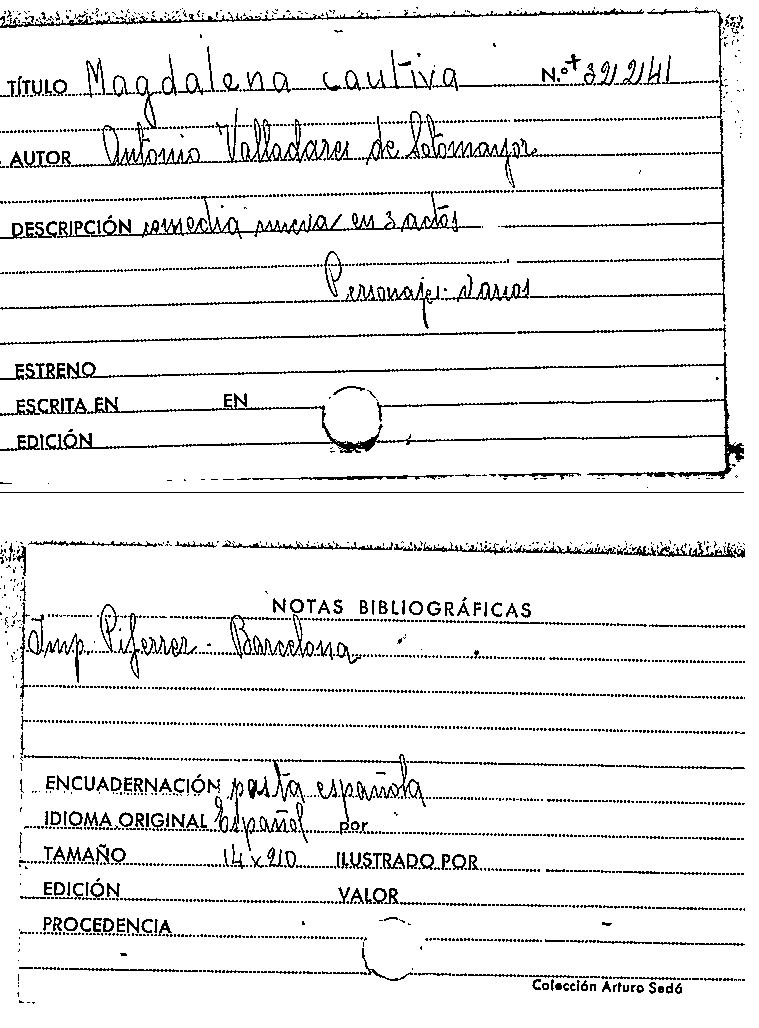 TÍTULO Magdalena cautiva N.º+ 32241
AUTOR Antonio Valladares de Sotomayor
DESCRIPCIÓN comedia nueva en 3 actos
Personajes: varios
ESTRENO
ESCRITA EN EN
EDICIÓN
NOTAS BIBLIOGRÁFICAS
Imp. Piferrer. Barcelona
ENCUADERNACIÓN pasta española
IDIOMA ORIGINAL Español por
TAMAÑO 14 x 20 ILUSTRADO POR
EDICIÓN VALOR
PROCEDENCIA
Colección Arturo Sedó